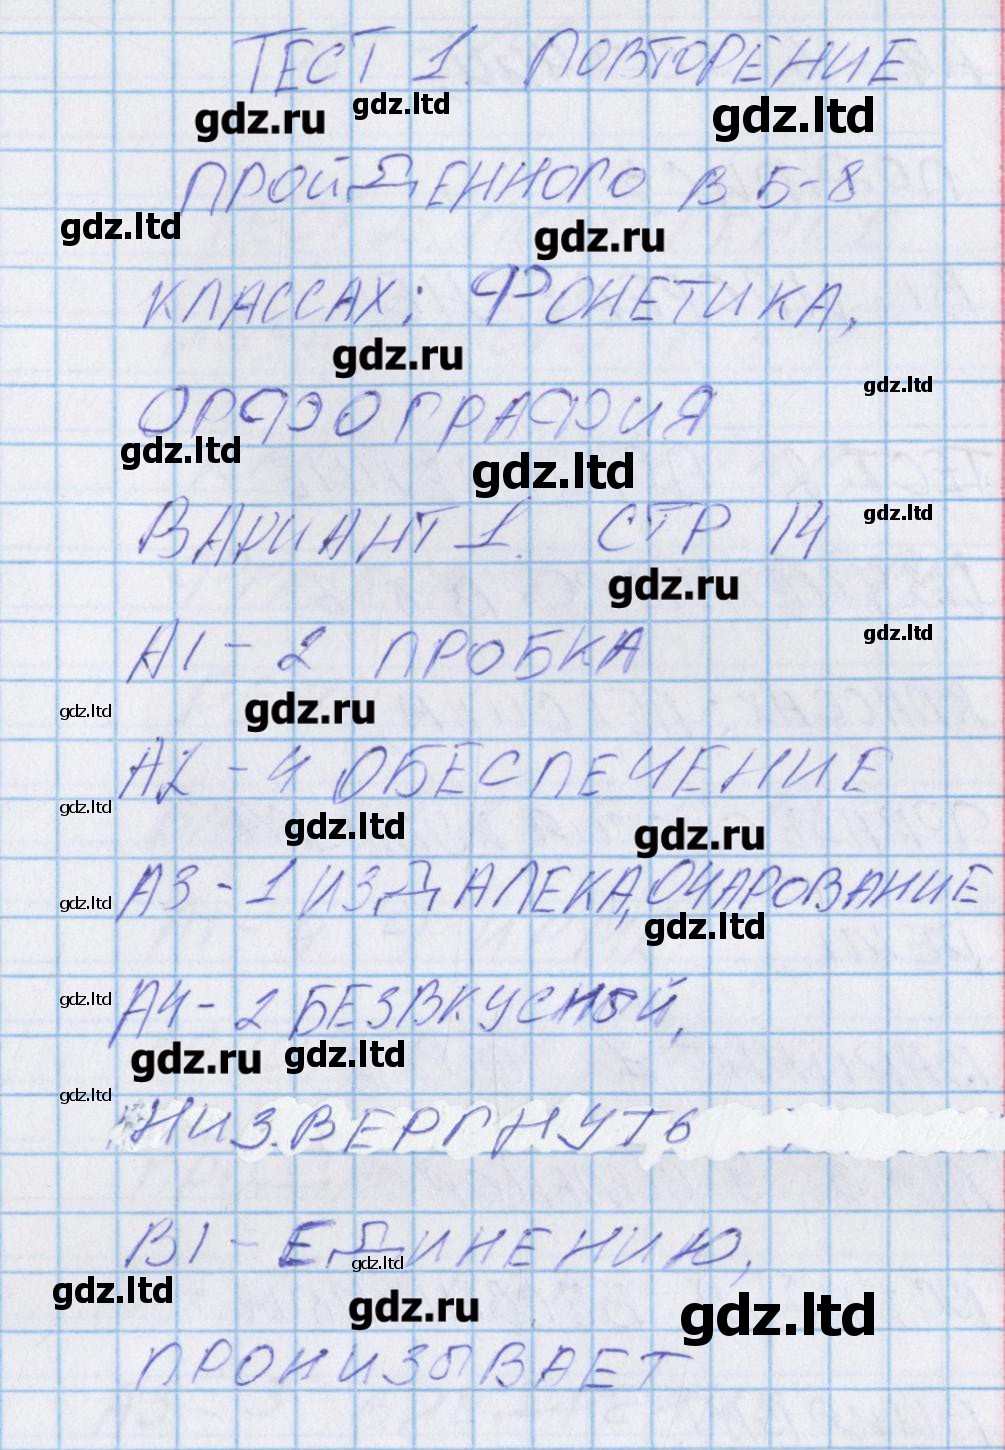 ТЕСТ 1. ПОВТОРЕНИЕ
gdz.ru gdz.ltd gdz.ltd
ПРОЙДЕННОГО В 5-8
gdz.ltd gdz.ru
КЛАССАХ: ФОНЕТИКА,
gdz.ru gdz.ltd
ОРФОГРАФИЯ
gdz.ltd gdz.ltd
ВАРИАНТ 1. СТР 14 gdz.ltd
gdz.ru
А1 - 2 ПРОБКА gdz.ltd
gdz.ltd gdz.ru
А2 - 4 ОБЕСПЕЧЕНИЕ
gdz.ltd gdz.ltd gdz.ru
А3 - 1 ИЗДАЛЕКА, ОЧАРОВАНИЕ
gdz.ltd gdz.ltd
gdz.ltd А4 - 2 БЕЗВКУСНЫЙ,
gdz.ru gdz.ltd
gdz.ltd
НИЗВЕРГНУТЬ
В1 - ЕДИНЕНИЮ,
gdz.ltd
gdz.ltd gdz.ru gdz.ltd
ПРОНИЗЫВАЕТ